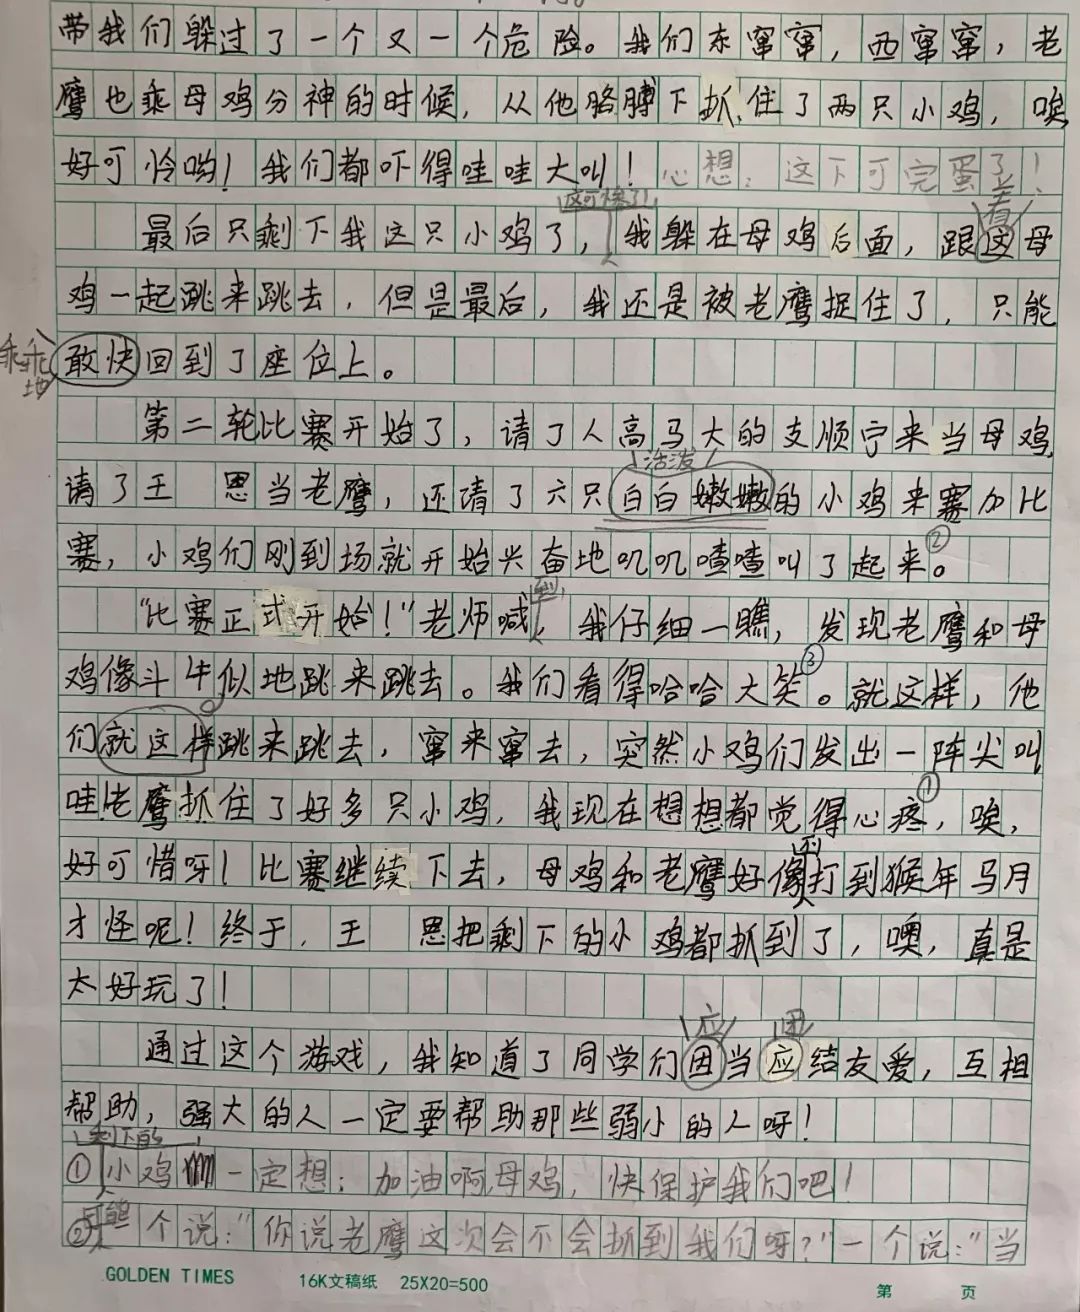 带我们躲过了一个又一个危险。我们东窜窜，西窜窜，老
鹰也乘母鸡分神的时候，从他胳膊下抓住了两只小鸡，唉
好可怜哟！我们都吓得哇哇大叫！心想：这下可完蛋了！
这可惨了！
看
最后只剩下我这只小鸡了，我躲在母鸡后面，跟这母
鸡一起跳来跳去，但是最后，我还是被老鹰捉住了，只能
乖乖地
敢快回到了座位上。
第二轮比赛开始了，请了人高马大的支顺宁来当母鸡，
活泼
请了王 思当老鹰，还请了六只白白嫩嫩的小鸡来赛加比
赛，小鸡们刚到场就开始兴奋地叽叽喳喳叫了起来。②
到
“比赛正式开始！”老师喊，我仔细一瞧，发现老鹰和母
鸡像斗牛似地跳来跳去。我们看得哈哈大笑③。就这样，他
们就这样跳来跳去，窜来窜去，突然小鸡们发出一阵尖叫
哇！老鹰抓住了好多只小鸡，我现在想想都觉得心疼①，唉，
好可惜呀！比赛继续下去，母鸡和老鹰好像打到猴年马月
才怪呢！终于，王 思把剩下的小鸡都抓到了，噢，真是
太好玩了！
应 团
通过这个游戏，我知道了同学们团当应结友爱，互相
帮助，强大的人一定要帮助那些弱小的人呀！
剩下的
①小鸡一定想：加油啊母鸡，快保护我们吧！
可能
②一个说：“你说老鹰这次会不会抓到我们呀？”一个说：“当
GOLDEN TIMES 16K文稿纸 25X20=500 第 页